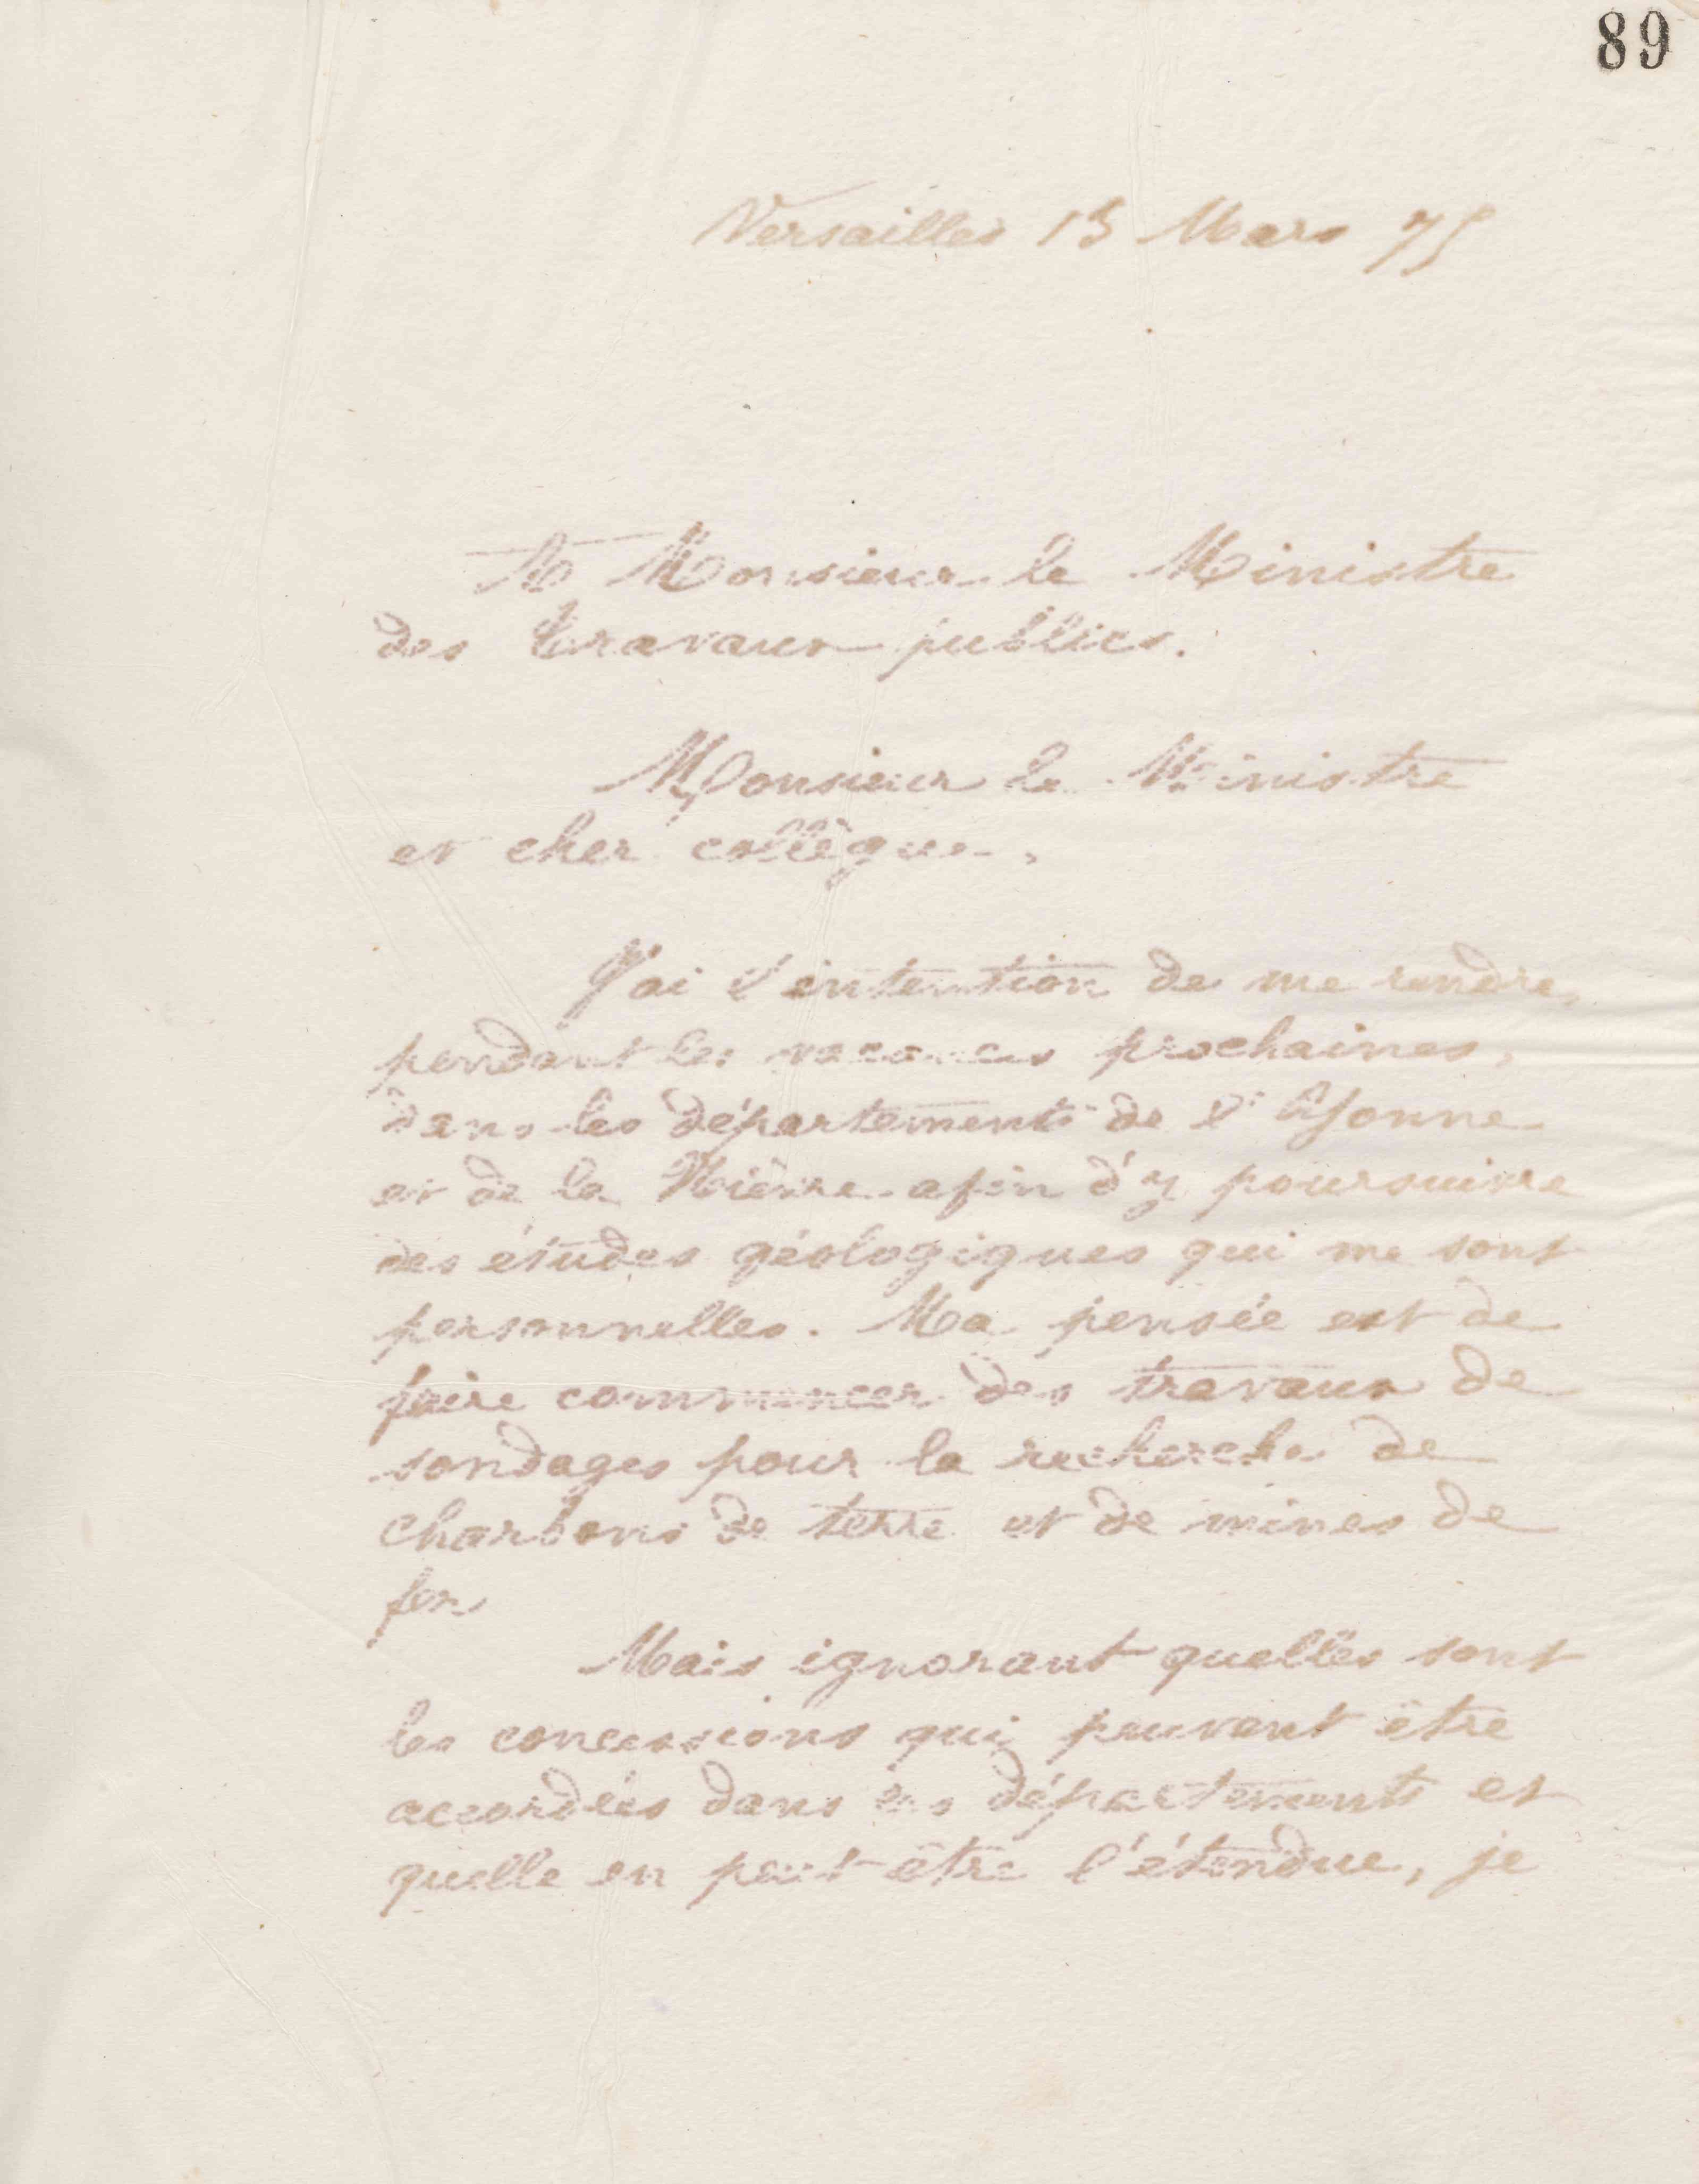 89
Versailles 15 Mars 75
A Monsieur le Ministre
des travaux publics.
Monsieur le Ministre
et cher collègue,
J'ai l'intention de me rendre,
pendant les vacances prochaines,
dans les départements de l'Yonne
et de la Nièvre afin d'y poursuivre
des études géologiques qui me sont
personnelles. Ma pensée est de
faire commencer des travaux de
sondages pour la recherche de
charbons de terre et de mines de
fer.
Mais ignorant quelles sont
les concessions qui peuvent être
accordées dans ces départements et
quelle en peut être l'étendue, je